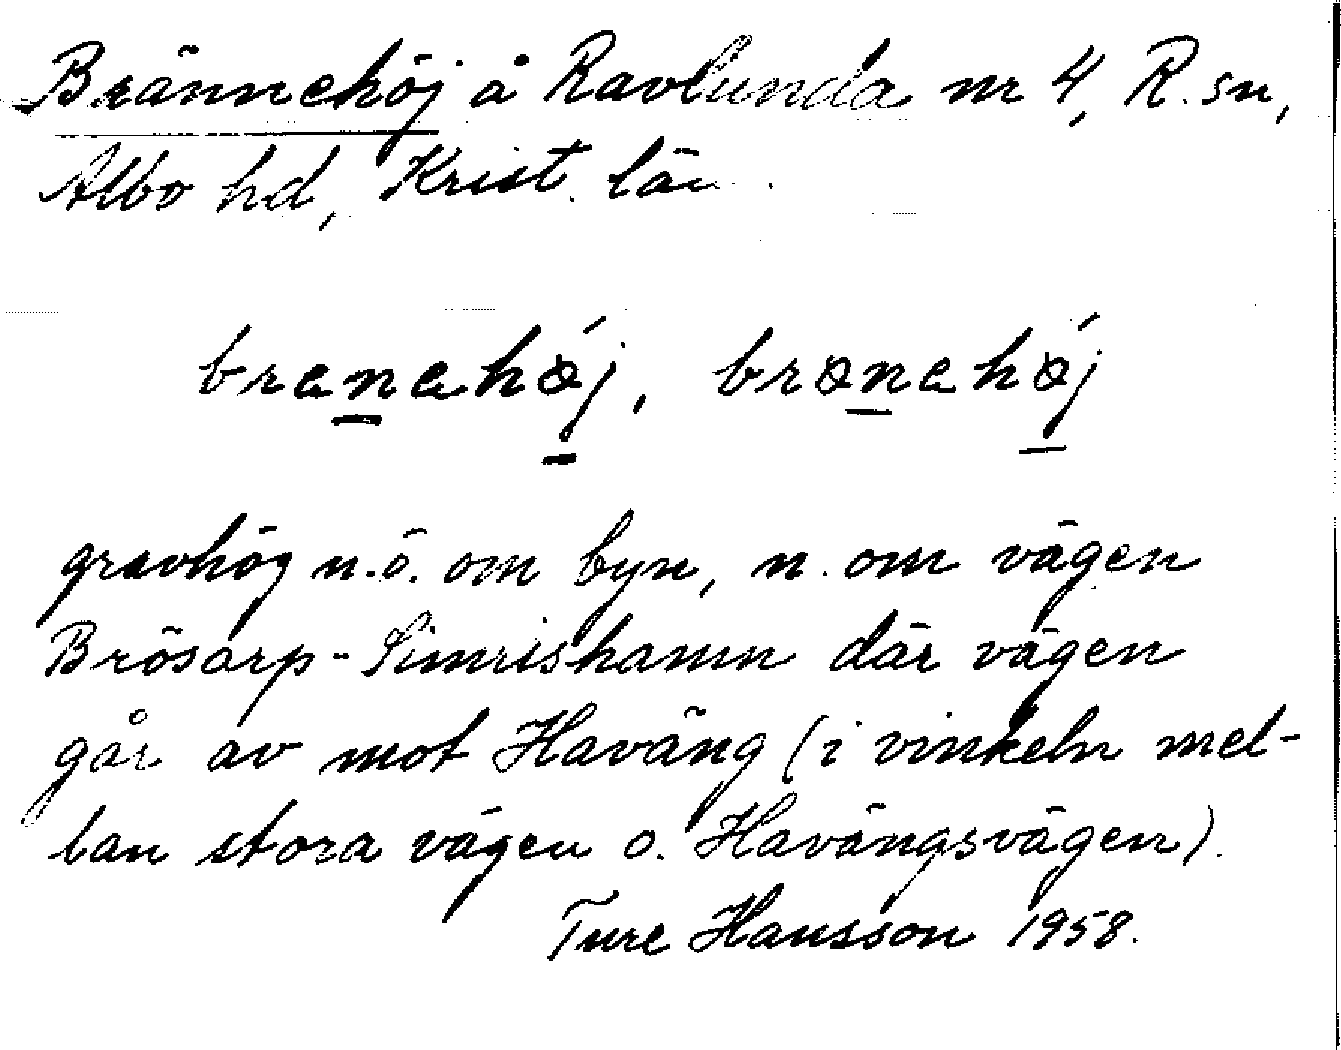 Brännehöj å Ravlunda nr 4, R. sn,
Albo hd, Krist. län.
brenehøj, brønehøj
gravhög n.ö. om byn, n. om vägen
Brösarp-Simrishamn där vägen
går av mot Haväng (i vinkeln mel-
lan stora vägen o. Havängsvägen).
Ture Hansson 1958.